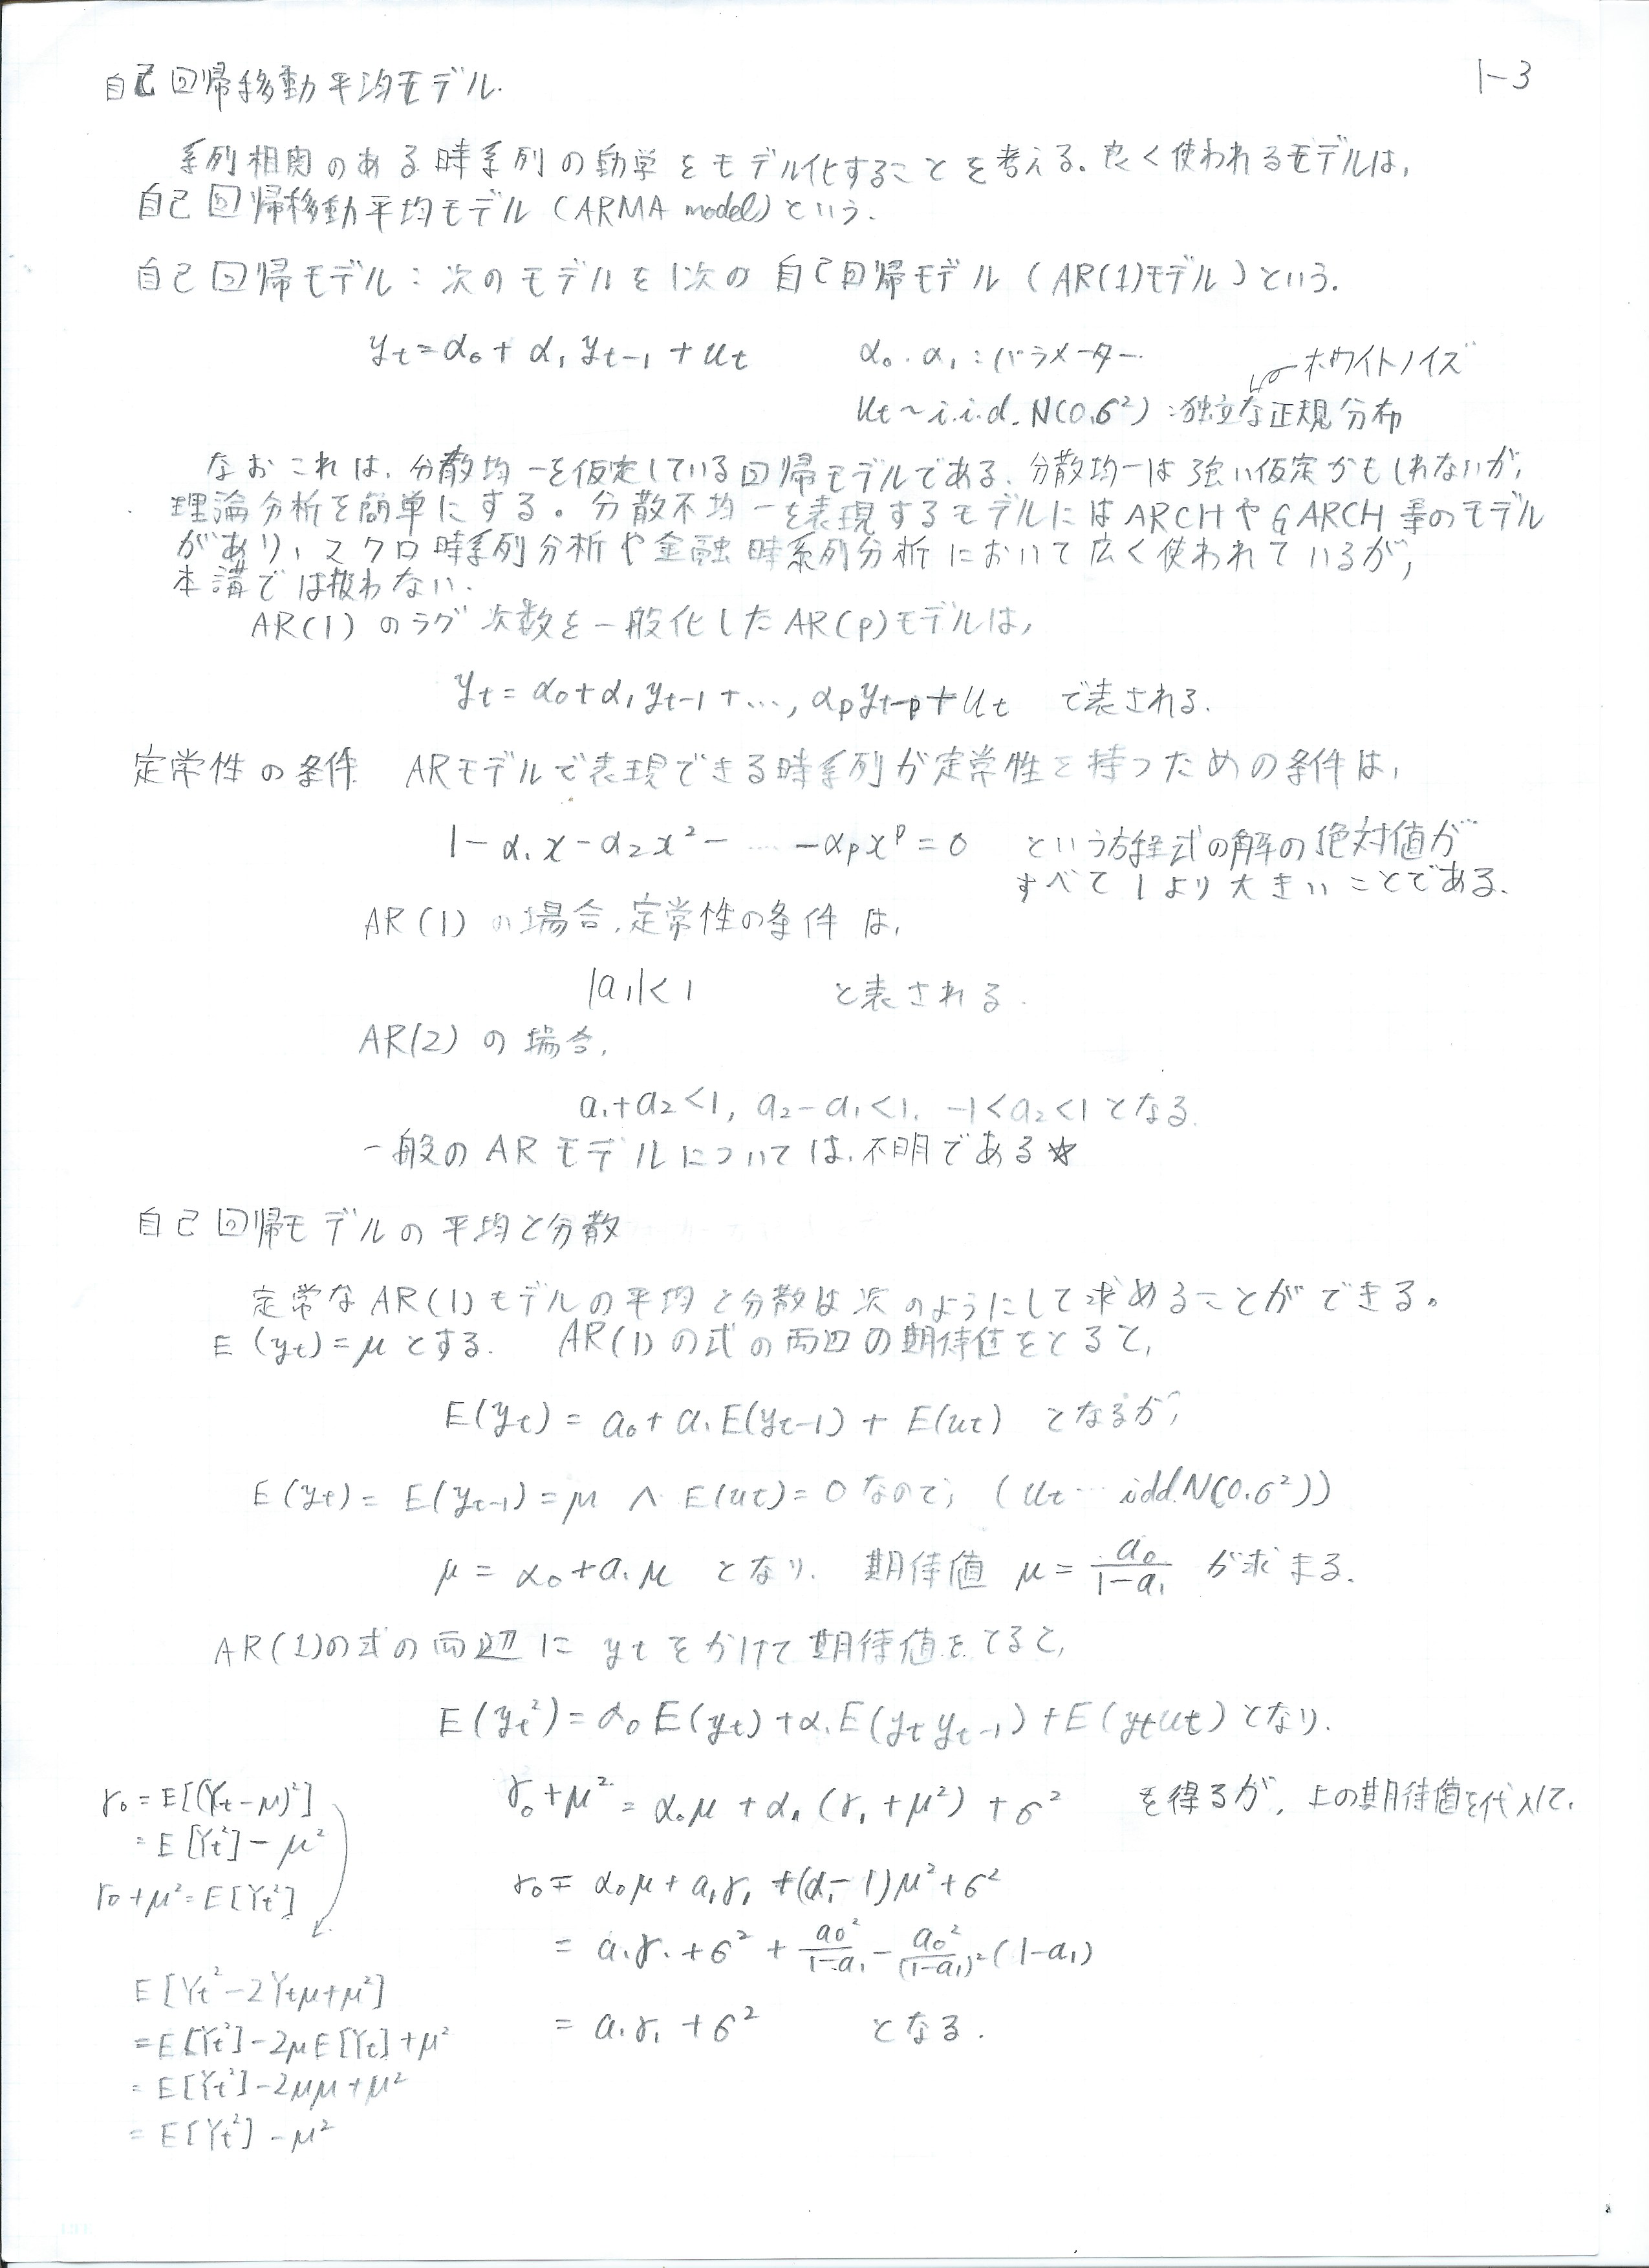 1-3
自己回帰移動平均モデル.
系列相関のある時系列の動学をモデル化することを考える. 良く使われるモデルは,
自己回帰移動平均モデル (ARMA model) という.
自己回帰モデル : 次のモデルを1次の自己回帰モデル (AR(1)モデル) という.
yt = α0 + α1 yt-1 + ut
α0. α1 : パラメーター.
ホワイトノイズ
ut ~ i.i.d. N(0.σ²) : 独立な正規分布
なおこれは, 分散均一を仮定している回帰モデルである. 分散均一は強い仮定かもしれないが,
理論分析を簡単にする。分散不均一を表現するモデルにはARCHやGARCH等のモデル
があり, マクロ時系列分析や金融時系列分析において広く使われているが,
本講では扱わない.
AR(1) のラグ次数を一般化したAR(p)モデルは,
yt = α0 + α1 yt-1 + ..., αp yt-p + ut で表される.
定常性の条件 ARモデルで表現できる時系列が定常性を持つための条件は,
1 - α1 x - α2 x² - … - αp x^p = 0 という方程式の解の絶対値が
すべて1より大きいことである.
AR(1) の場合, 定常性の条件は,
|a1| < 1 と表される.
AR(2) の場合,
a1 + a2 < 1, a2 - a1 < 1. -1 < a2 < 1 となる.
一般のARモデルについては, 不明である☆
自己回帰モデルの平均と分散
定常なAR(1)モデルの平均と分散は次のようにして求めることができる。
E(yt) = μ とする. AR(1)の式の両辺の期待値をとると,
E(yt) = a0 + a1 E(yt-1) + E(ut) となるが,
E(yt) = E(yt-1) = μ ∧ E(ut) = 0 なので, (ut … idd. N(0.σ²))
μ = α0 + a1 μ となり. 期待値 μ = a0/(1-a1) が求まる.
AR(1)の式の両辺に yt をかけて期待値をとると,
E(yt²) = α0 E(yt) + α1 E(yt yt-1) + E(yt ut) となり.
γ0 + μ² = α0 μ + α1 (γ1 + μ²) + σ² を得るが, 上の期待値を代入して,
γ0 = α0 μ + a1 γ1 + (α1 - 1) μ² + σ²
= a1 γ1 + σ² + a0²/(1-a1) - a0²/(1-a1)² (1-a1)
= a1 γ1 + σ² となる.
γ0 = E[(Yt-μ)²]
= E[Yt²] - μ²
γ0 + μ² = E[Yt²]
E[Yt² - 2Ytμ + μ²]
= E[Yt²] - 2μE[Yt] + μ²
= E[Yt²] - 2μμ + μ²
= E[Yt²] - μ²